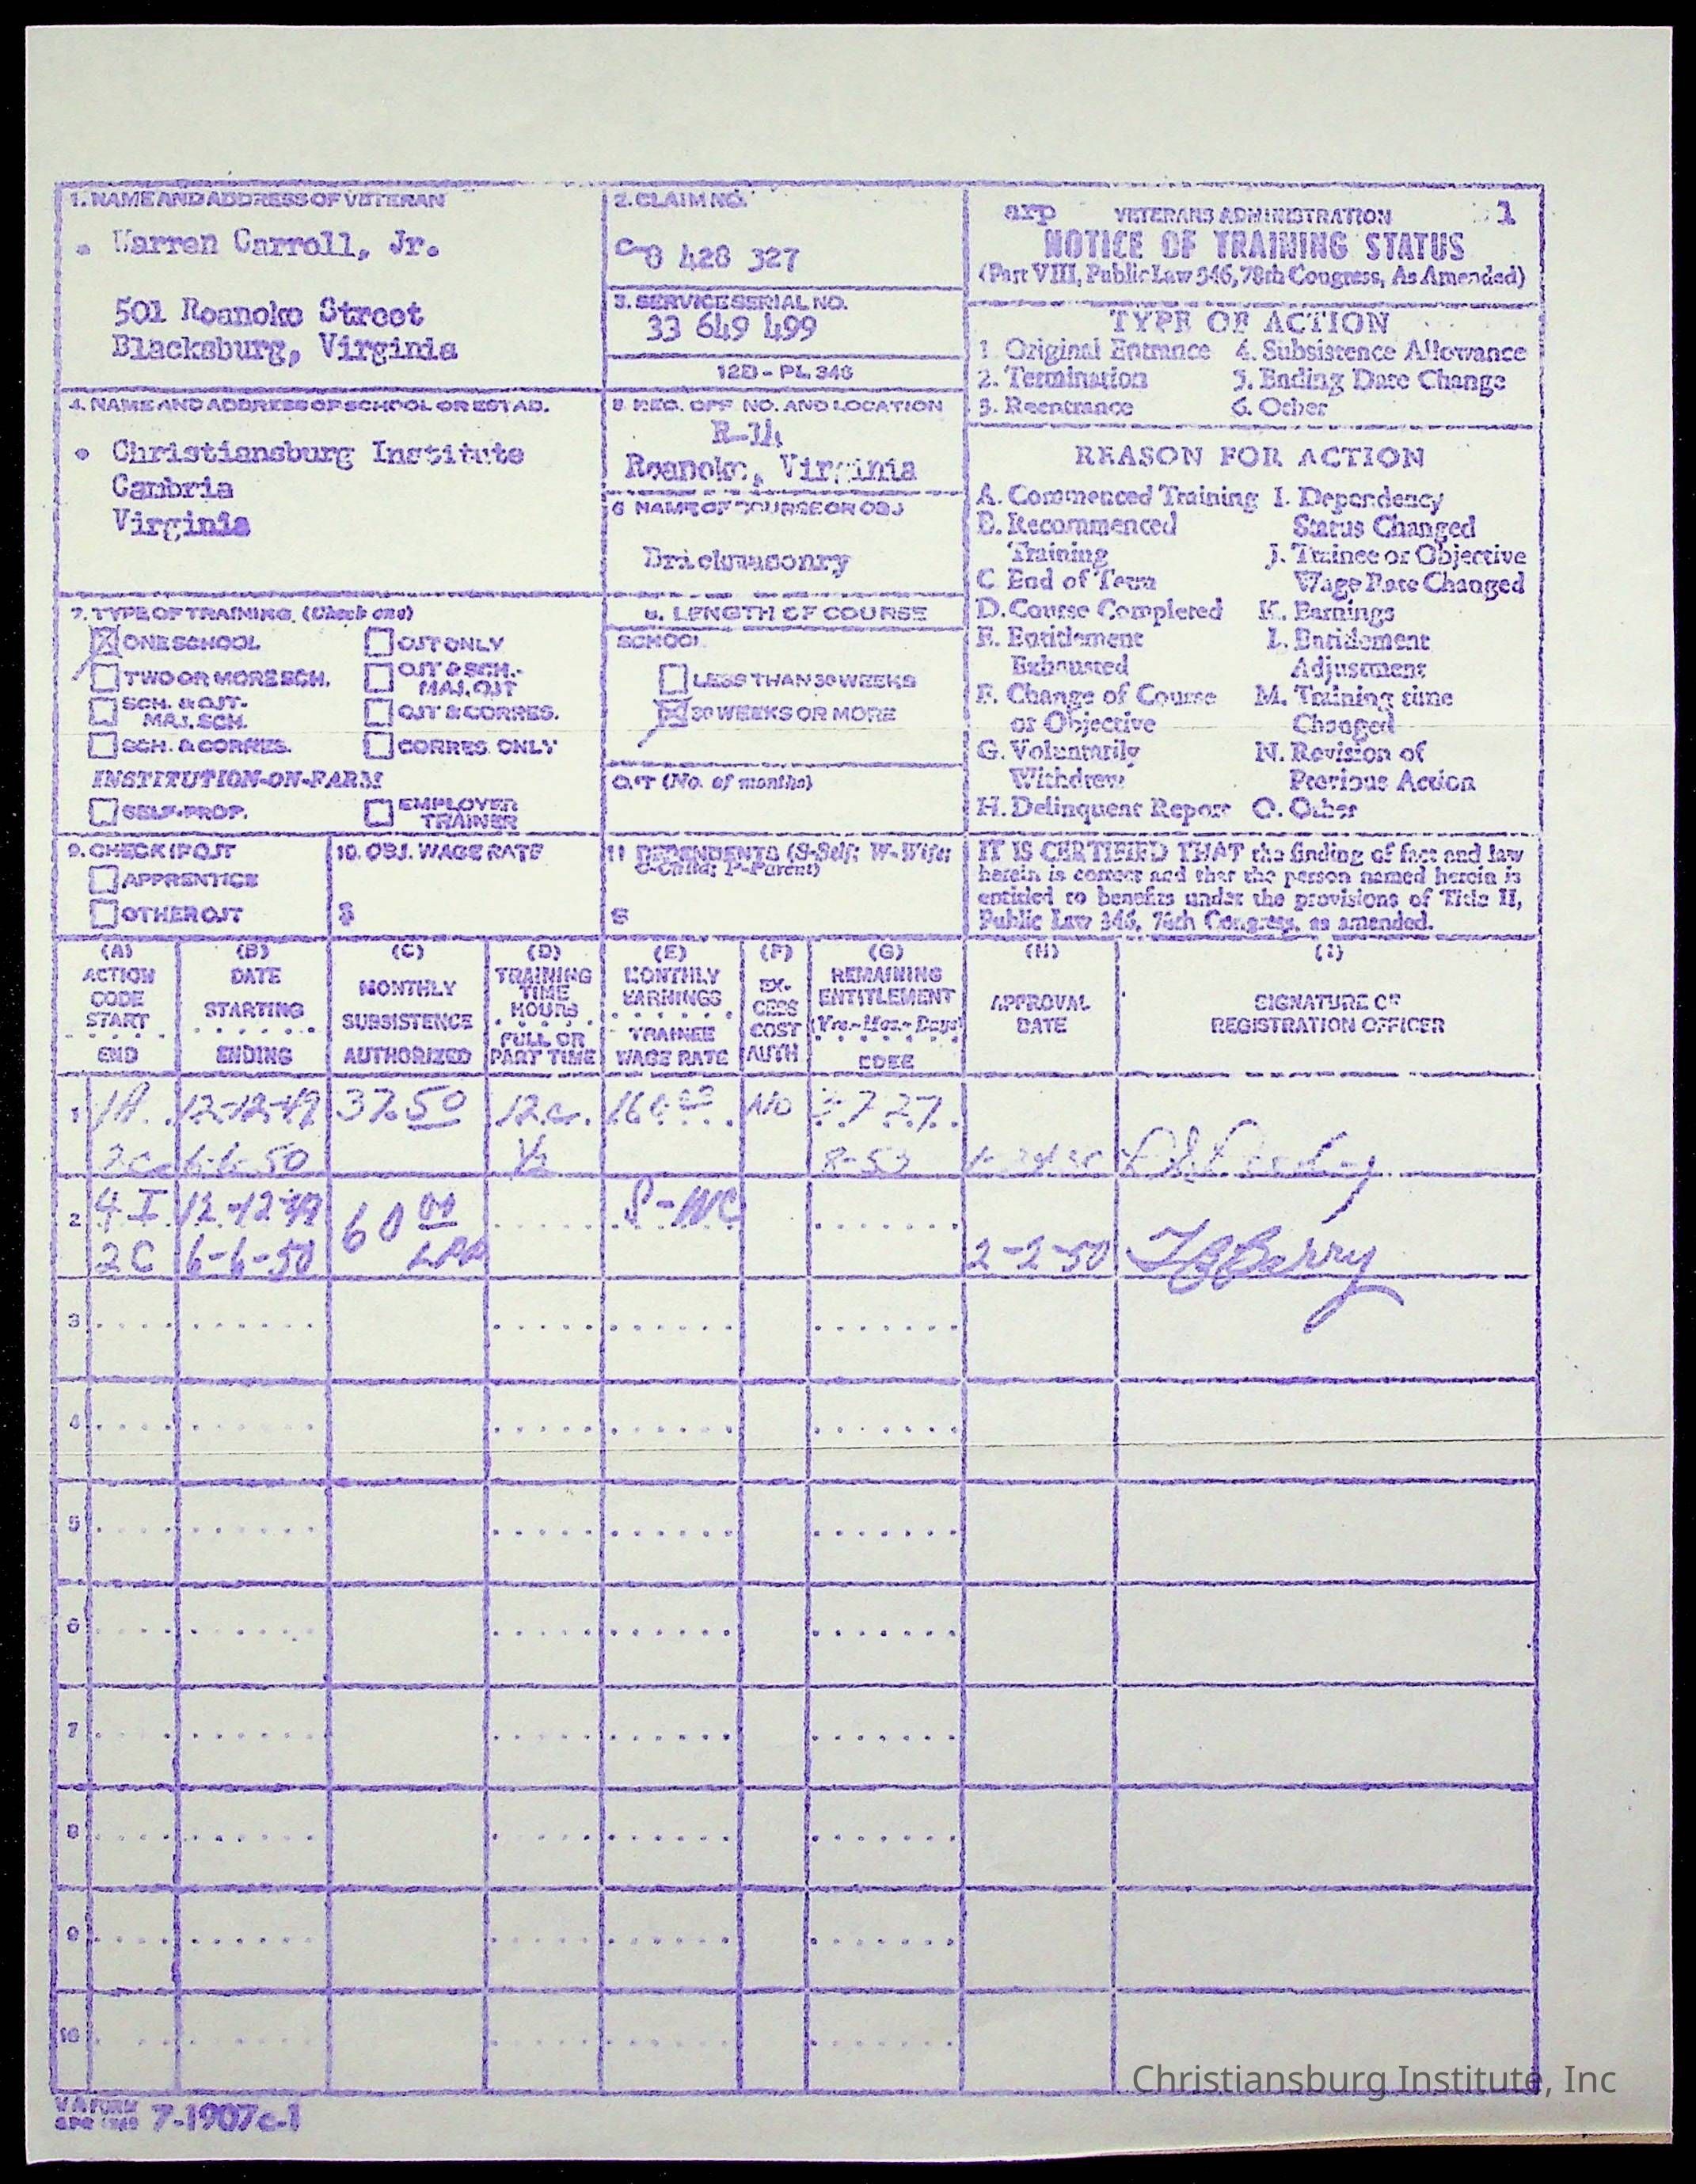 1. NAME AND ADDRESS OF VETERAN
Warren Carroll, Jr.
501 Roanoke Street
Blacksburg, Virginia
2. CLAIM NO.
C-8 428 327
3. SERVICE SERIAL NO.
33 649 499
12D - PL 346
arp VETERANS ADMINISTRATION 1
NOTICE OF TRAINING STATUS
(Part VIII, Public Law 346, 78th Congress, As Amended)
TYPE OF ACTION
1. Original Entrance 4. Subsistence Allowance
2. Termination 5. Ending Date Change
3. Reentrance 6. Other
4. NAME AND ADDRESS OF SCHOOL OR ESTAB.
Christiansburg Institute
Cambria
Virginia
5. REG. OFF. NO. AND LOCATION
R-14
Roanoke, Virginia
6. NAME OF COURSE OR OBJ
Brickmasonry
REASON FOR ACTION
A. Commenced Training I. Dependency
B. Recommenced Status Changed
Training J. Trainee or Objective
C. End of Term Wage Rate Changed
D. Course Completed K. Earnings
E. Entitlement L. Entitlement
Exhausted Adjustment
F. Change of Course M. Training time
or Objective Changed
G. Voluntarily N. Revision of
Withdrew Previous Action
H. Delinquent Report O. Other
7. TYPE OF TRAINING. (Check one)
ONE SCHOOL OJT ONLY
TWO OR MORE SCH. OJT & SCH.-
MAJ. OJT
SCH. & OJT-
MAJ. SCH. OJT & CORRES.
SCH. & CORRES. CORRES. ONLY
INSTITUTION-ON-FARM
SELF-PROP. EMPLOYER
TRAINER
8. LENGTH OF COURSE
SCHOOL
LESS THAN 30 WEEKS
30 WEEKS OR MORE
OJT (No. of months)
9. CHECK IF OJT
APPRENTICE
OTHER OJT
10. OBJ. WAGE RATE
$
11 DEPENDENTS (S-Self; W-Wife;
C-Child; P-Parent)
S
IT IS CERTIFIED THAT the finding of fact and law
herein is correct and that the person named herein is
entitled to benefits under the provisions of Title II,
Public Law 346, 78th Congress, as amended.
(A) (B) (C) (D) (E) (F) (G) (H) (I)
ACTION CODE START END
DATE STARTING ENDING
MONTHLY SUBSISTENCE AUTHORIZED
TRAINING TIME HOURS FULL OR PART TIME
MONTHLY EARNINGS TRAINEE WAGE RATE
EX-CESS COST AUTH
REMAINING ENTITLEMENT (Yrs.-Mos.-Days) CDEE
APPROVAL DATE
SIGNATURE OF REGISTRATION OFFICER
1 1A 12-12-49 37.50 NO
2C 6-6-50 1/2 8-53
2 4 I 12-12-49 60 00 S-WC
2C 6-6-50 2-2-50 Berry
3
4
5
6
7
8
9
10
VA FORM
7-1907c-1
Christiansburg Institute, Inc